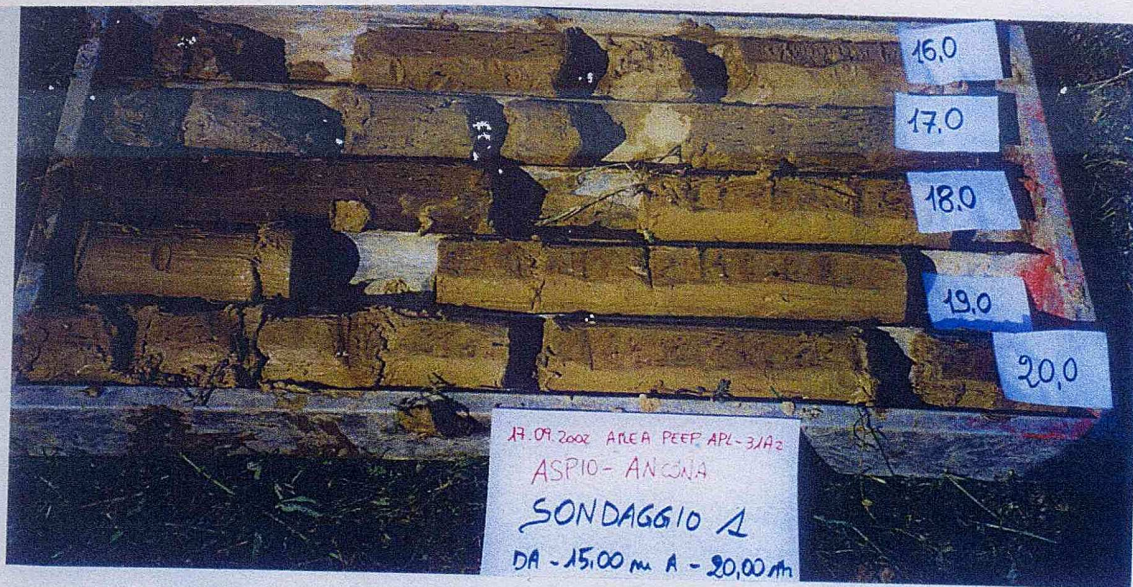 16,0
17,0
18,0
19,0
20,0
17.09.2002 AREA PEEP APL-31A2
ASPIO - ANCONA
SONDAGGIO 1
DA - 15,00 m A - 20,00 m